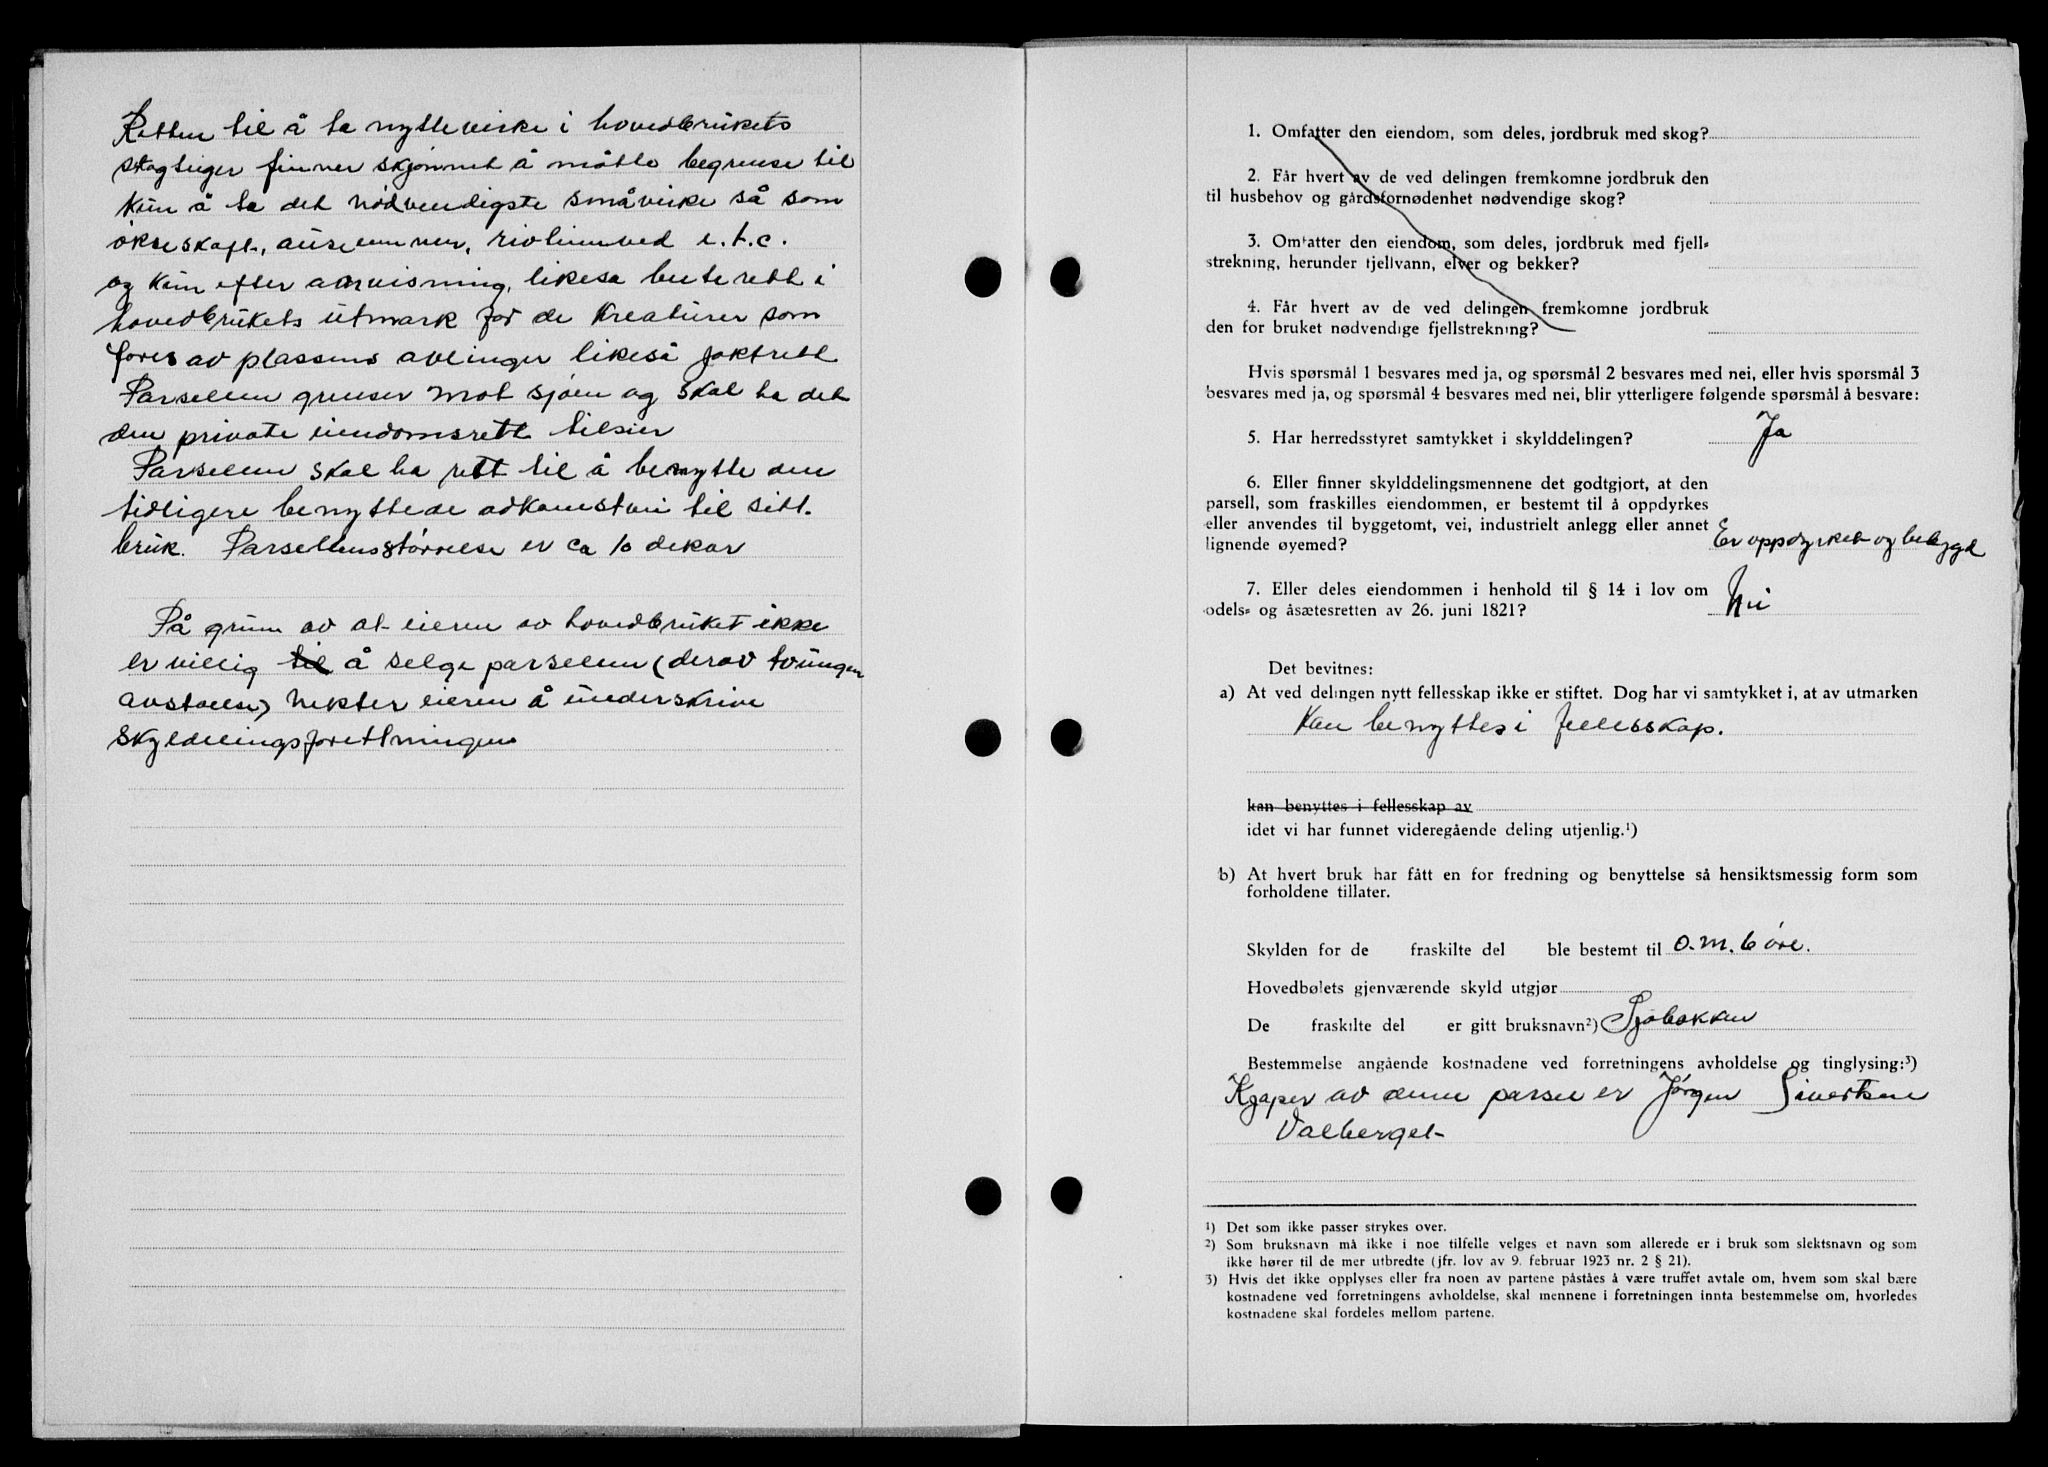 Retten til å ta nyttevirke i hovedbrukets
skogteiger finner skjønnet å måtte begrense til
kun å ta det nødvendigste småvirke så som
økseskaft, auseemner, rivtinnved e.t.c.
og kun efter anvisning, likeså beiterett i
hovedbrukets utmark for de kreaturer som
fores av plassens avlinger likeså jaktrett
Parsellen grenser mot sjøen og skal ha det
den private eiendomsrett tilsier
Parsellen skal ha rett til å benytte den
tidligere benyttede adkomstvei til sitt.
bruk. Parsellens størrelse er ca 10 dekar
På grun av at eieren av hovedbruket ikke
er villig til å selge parsellen (derav tvungen
avståelse) nekter eieren å underskrive
skyldelingsforettningen
1. Omfatter den eiendom, som deles, jordbruk med skog?
2. Får hvert av de ved delingen fremkomne jordbruk den
til husbehov og gårdsfornødenhet nødvendige skog?
3. Omfatter den eiendom, som deles, jordbruk med fjell-
strekning, herunder fjellvann, elver og bekker?
4. Får hvert av de ved delingen fremkomne jordbruk
den for bruket nødvendige fjellstrekning?
Hvis spørsmål 1 besvares med ja, og spørsmål 2 besvares med nei, eller hvis spørsmål 3
besvares med ja, og spørsmål 4 besvares med nei, blir ytterligere følgende spørsmål å besvare:
5. Har herredsstyret samtykket i skylddelingen? Ja
6. Eller finner skylddelingsmennene det godtgjort, at den
parsell, som fraskilles eiendommen, er bestemt til å oppdyrkes
eller anvendes til byggetomt, vei, industrielt anlegg eller annet
lignende øyemed? Er oppdyrket og bebygd
7. Eller deles eiendommen i henhold til § 14 i lov om
odels- og åsætesretten av 26. juni 1821? Nei
Det bevitnes:
a) At ved delingen nytt fellesskap ikke er stiftet. Dog har vi samtykket i, at av utmarken
Kan benyttes i fellesskap.
kan benyttes i fellesskap av
idet vi har funnet videregående deling utjenlig.1)
b) At hvert bruk har fått en for fredning og benyttelse så hensiktsmessig form som
forholdene tillater.
Skylden for de fraskilte del ble bestemt til 0.m.6 øre.
Hovedbølets gjenværende skyld utgjør
De fraskilte del er gitt bruksnavn2) Sjøbakken
Bestemmelse angående kostnadene ved forretningens avholdelse og tinglysing:3)
Kjøper av denne parsell er Jørgen Sivertsen
Valberget
1) Det som ikke passer strykes over.
2) Som bruksnavn må ikke i noe tilfelle velges et navn som allerede er i bruk som slektsnavn og som
ikke hører til de mer utbredte (jfr. lov av 9. februar 1923 nr. 2 § 21).
3) Hvis det ikke opplyses eller fra noen av partene påståes å være truffet avtale om, hvem som skal bære
kostnadene ved forretningens avholdelse, skal mennene i forretningen innta bestemmelse om, hvorledes
kostnadene skal fordeles mellom partene.